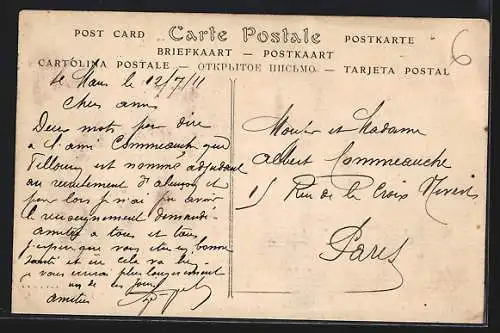 POST CARD Carte Postale POSTKARTE
BRIEFKAART — POSTKAART
CARTOLINA POSTALE — ОТКРЫТОЕ ПИСЬМО — TARJETA POSTAL
6
le Mans le 12/7/11
Chers amis
Deux mots pour dire
a l'ami Commeauche que
est nommé adjudant
au recrutement d'alençon et
pour lors j'n'ai pu avoir
le renseignement demandé
amitiés a tous et tous
j'espère que vous êtes en bonne
santé et in cela va bien
vous plus longuement
un de ces jours
amitiés
Monsr et Madame
Albert Commeauche
15 Rue de la Croix Nivert
Paris